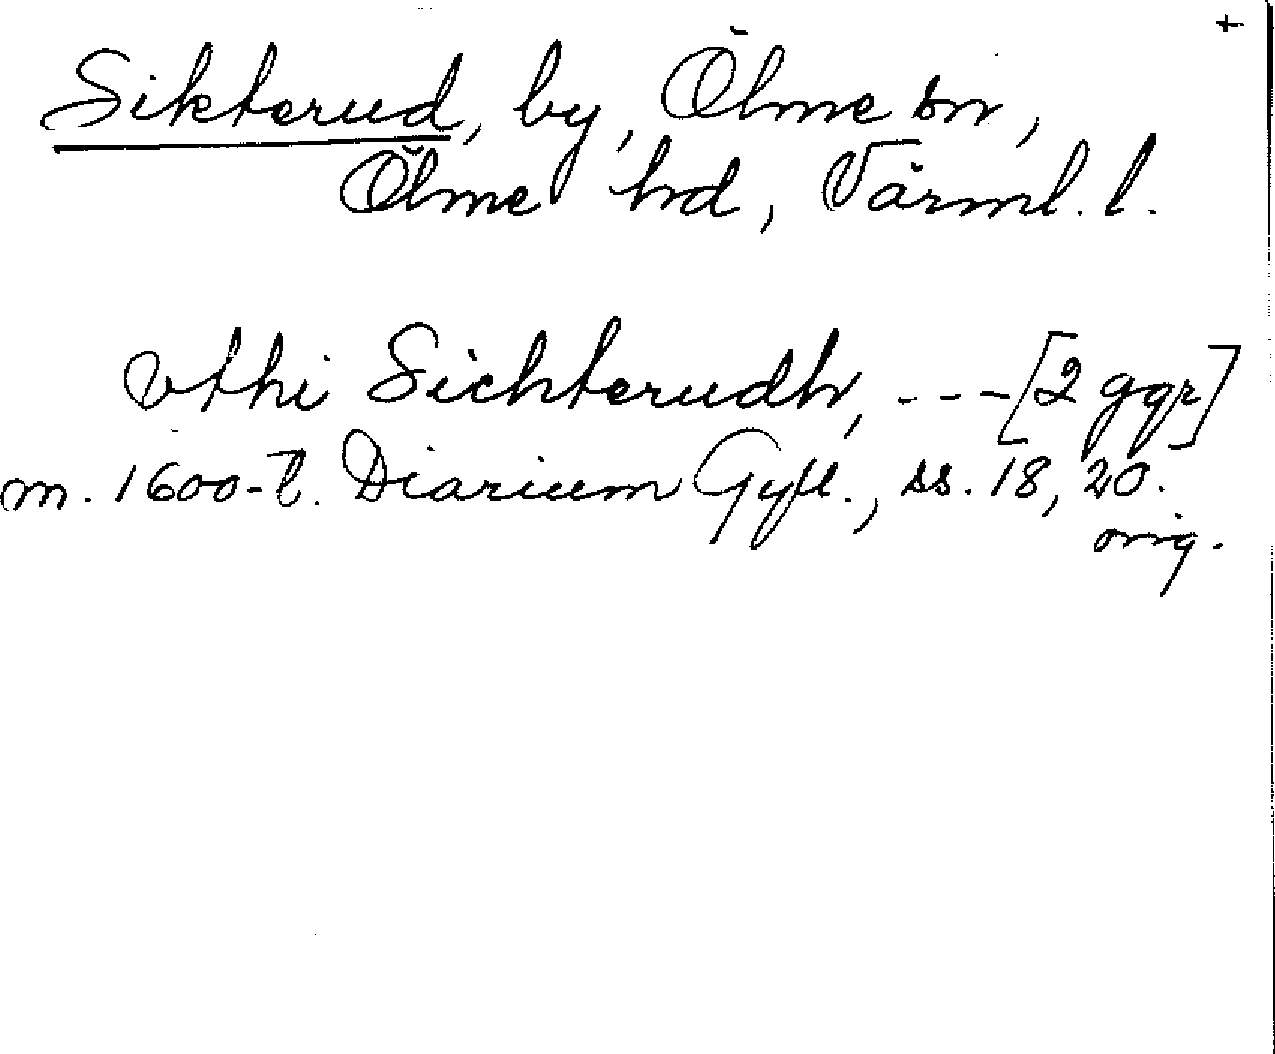 +
Sikterud, by, Ölme sn,
Ölme hd, Värml. l.
vthi Sichterudh, --- [2 ggr]
m. 1600-t. Diarium Gyll., ss. 18, 20.
orig.